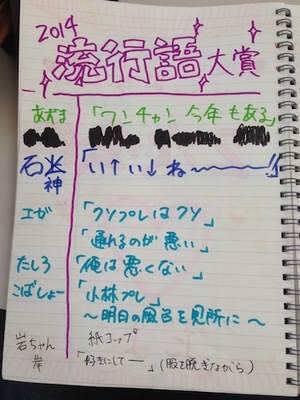 2014
流行語大賞
あずま 「ワンチャン 今年もある」
石神 「い↑い↓ね〜〜〜!!」
エガ 「クソプレはクソ」
「通れるのが悪い」
たしろ 「俺は悪くない」
こばしょー 「小林プレ」
〜明日の風呂を見所に〜
岩ちゃん 紙コップ
岸 「好きにしてー」(服を脱ぎながら)